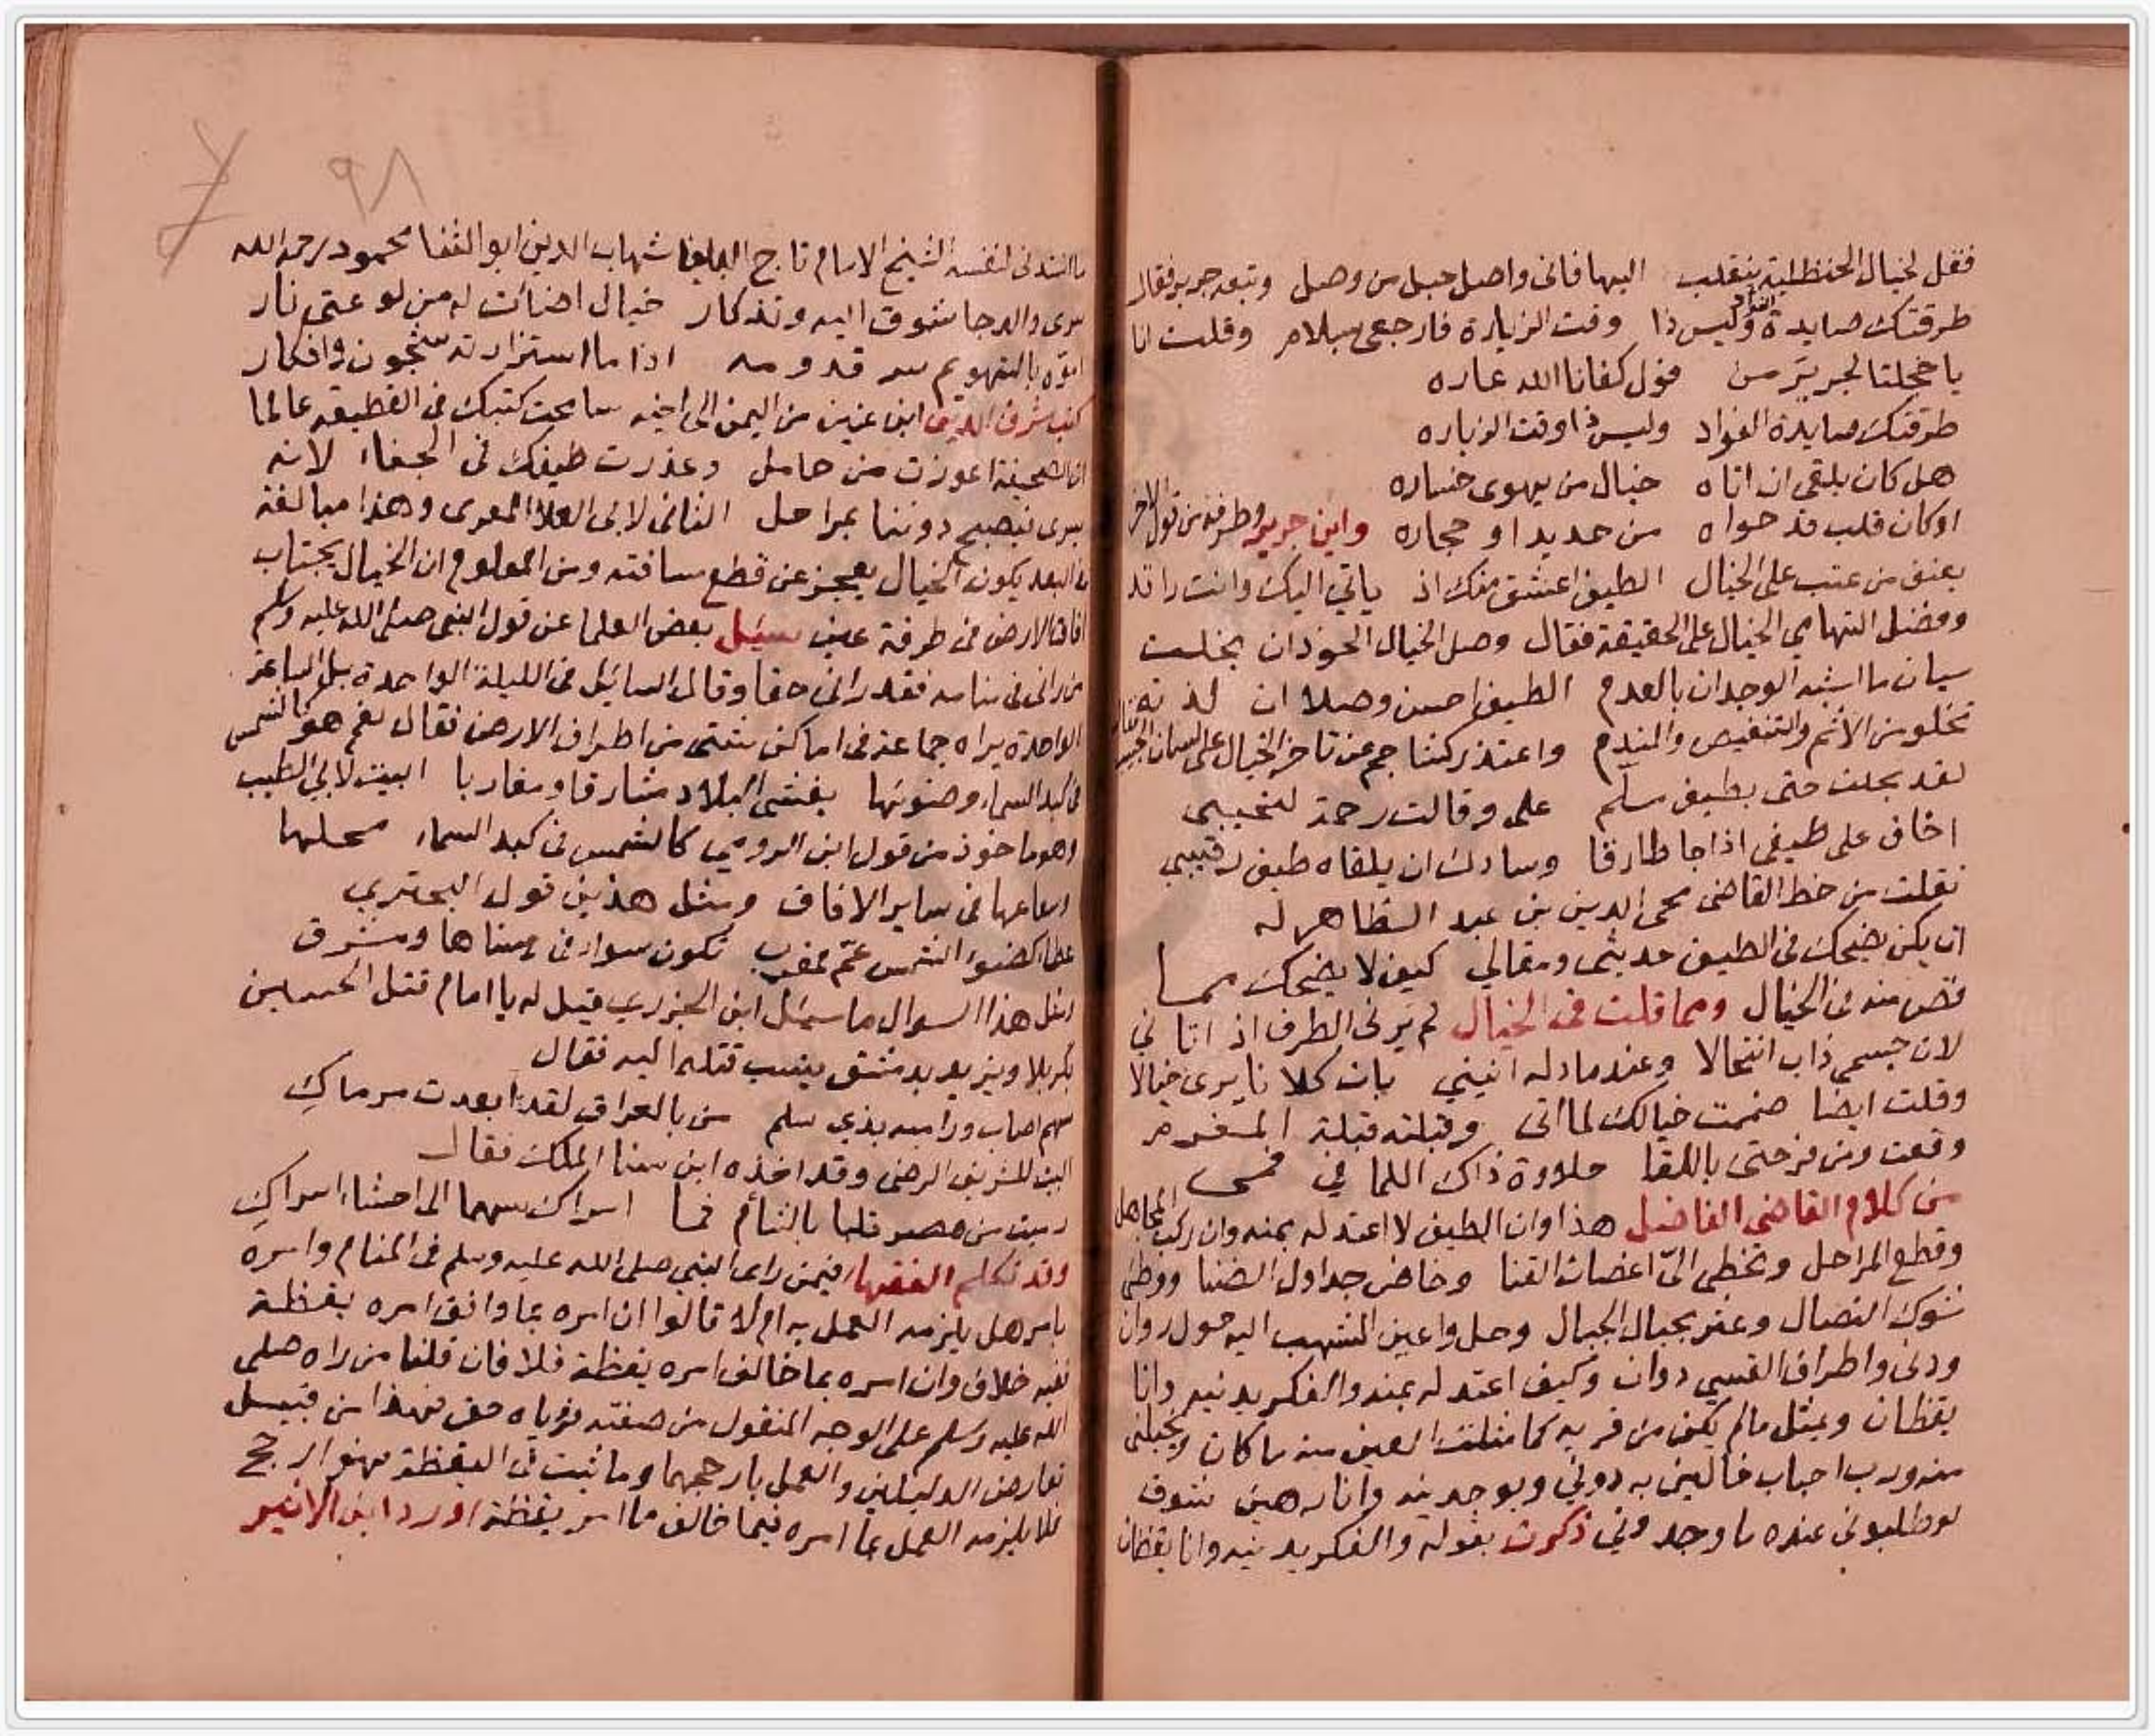 فقل لخيال الحنظلية ينقلب اليها فانى واصل حبل من وصل وتبعه جرير فقال
طرقتك صايدة الفؤاد وليس ذا وقت الزيارة فارجعى بسلام وقلت انا
يا خجلتا لجرير من قول كفانا الله عاره
طرقتك صايدة الفواد وليس ذا وقت الزياره
هل كان يلقى ان اتاه خيال من يهوى خساره
او كان قلب قد حواه من حديد او حجاره واين جرير وطرفه من قول الاخر
يعنق من عتب على الخيال الطيف اعشق منك اذ ياتي اليك وانت راقد
وفضل التهامي الخيال على الحقيقة فقال وصل الخيال الخود ان بخلت
سيان ما اشبه الوجدان بالعدم الطيف احسن وصلا ان لذته
تخلو من الاثم والتنغيص والندم واعتذر كشاجم عن تاخر الخيال على لسان الحبيب فقال
لقد بخلت حتى بطيف مسلم على وقالت رحمة لنحيبى
اخاف على طيفى اذا جا طارقا وسادك ان يلقاه طيف رقيبي
نقلت من خط القاضى محى الدين بن عبد الظاهر له
ان يكن يضحك فى الطيف حديثى ومقالي كيف لا يضحك مما
قص منه فى الخيال ومما قلت فى الخيال لم يرنى الطرف اذ اتاني
لان جسمى ذاب انتحالا وعندما دله انيني بات كلانا يرى خيالا
وقلت ايضا ضممت خيالك لما اتى وقبلته قبلة المغرم
وقمت ومن فرحتى باللقا حلاوة ذاك اللما في فمى
من كلام القاضى الفاضل هذا وان الطيف لا اعتد له بمنه وان ركب المجاهل
وقطع المراحل وتخطى الىّ اغصان القنا وخاض جداول الضبا ووطى
شوك النصال وعثر بحبال الجبال وحل واعين الشهب اليه حول روان
ودنى واطراف القسي دوان وكيف اعتد له بمنه والفكر يدنيه وانا
يقظان ويمثل مالم يكن من قربه كما مثلت العين منه ما كان ويخجلنى
منه ورب احباب خالين به دوني وبوجدينه وانا رهين شوق
لو طلبونى عنده ما وجدوني ذكرت بقوله والفكر يدنيه وانا يقظان
٩٨
ما انشدنى لنفسه الشيخ الامام تاج البلغا شهاب الدين ابو الثنا محمود رحمه الله
سرى والدجا شوق اليه وتذكار خيال اضات له من لوعتى نار
اموه بالتهويم سر قدومه اذا ما استزارته شجون وافكار
كتب شرف الدين ابن عنين من اليمن الى اخيه سامحت كتبك فى القطيعه عالما
ان الصحيفة اعوزت من حامل وعذرت طيفك فى الجفاء لانه
يسرى فيصبح دوننا بمراحل الثانى لابى العلا المعرى وهذا مبالغة
فى البعد يكون الخيال يعجز عن قطع مسافته ومن المعلوم ان الخيال يجتاب
افاق الارض فى طرفة عين سئل بعض العلما عن قول النبى صلى الله عليه وسلم
من رانى فى منامه فقد رانى حقا وقال السائل فى الليلة الواحدة بل الساعة
الواحدة يراه جماعة فى اماكن شتى من اطراف الارض فقال نعم هو كالشمس
فى كبد السماء وضوئها يغشى البلاد مشارقا ومغاربا البيت لابى الطيب
وهو ماخوذ من قول ابن الرومي كالشمس فى كبد السماء محلها
وشعاعها فى ساير الافاق ومثل هذين قول البحتري
عطا كضوء الشمس عم فمغرب يكون سوا فى سناها ومشرق
ومثل هذا السوال ما سئل ابن الجزري فقيل له يا امام قتل الحسين
بكربلا ويزيد بدمشق ينسب قتله اليه فقال
سهم اصاب وراميه بذي سلم من بالعراق لقد ابعدت مرماكِ
البيت للشريف الرضى وقد اخذه ابن سنا الملك فقال
رميت من مصر قلبا بالشأم فما اسراك سهما الى احشاء اسراكِ
وقد تكلم الفقها فيمن راى النبى صلى الله عليه وسلم فى المنام وامره
بامر هل يلزمه العمل به ام لا قالوا ان امره بما وافق امره يقظة
ففيه خلاف وان امره بما خالف امره يقظة فلا فان قلنا من راه صلى
الله عليه وسلم على الوجه المنقول من صفته فرؤياه حق فهذا من قبيل
تعارض الدليلين والعمل بارجحهما وما ثبت فى اليقظة فهو ارجح
فلا يلزمه العمل بما امره فيما خالف ما امر يقظة اورد ابن الاثير